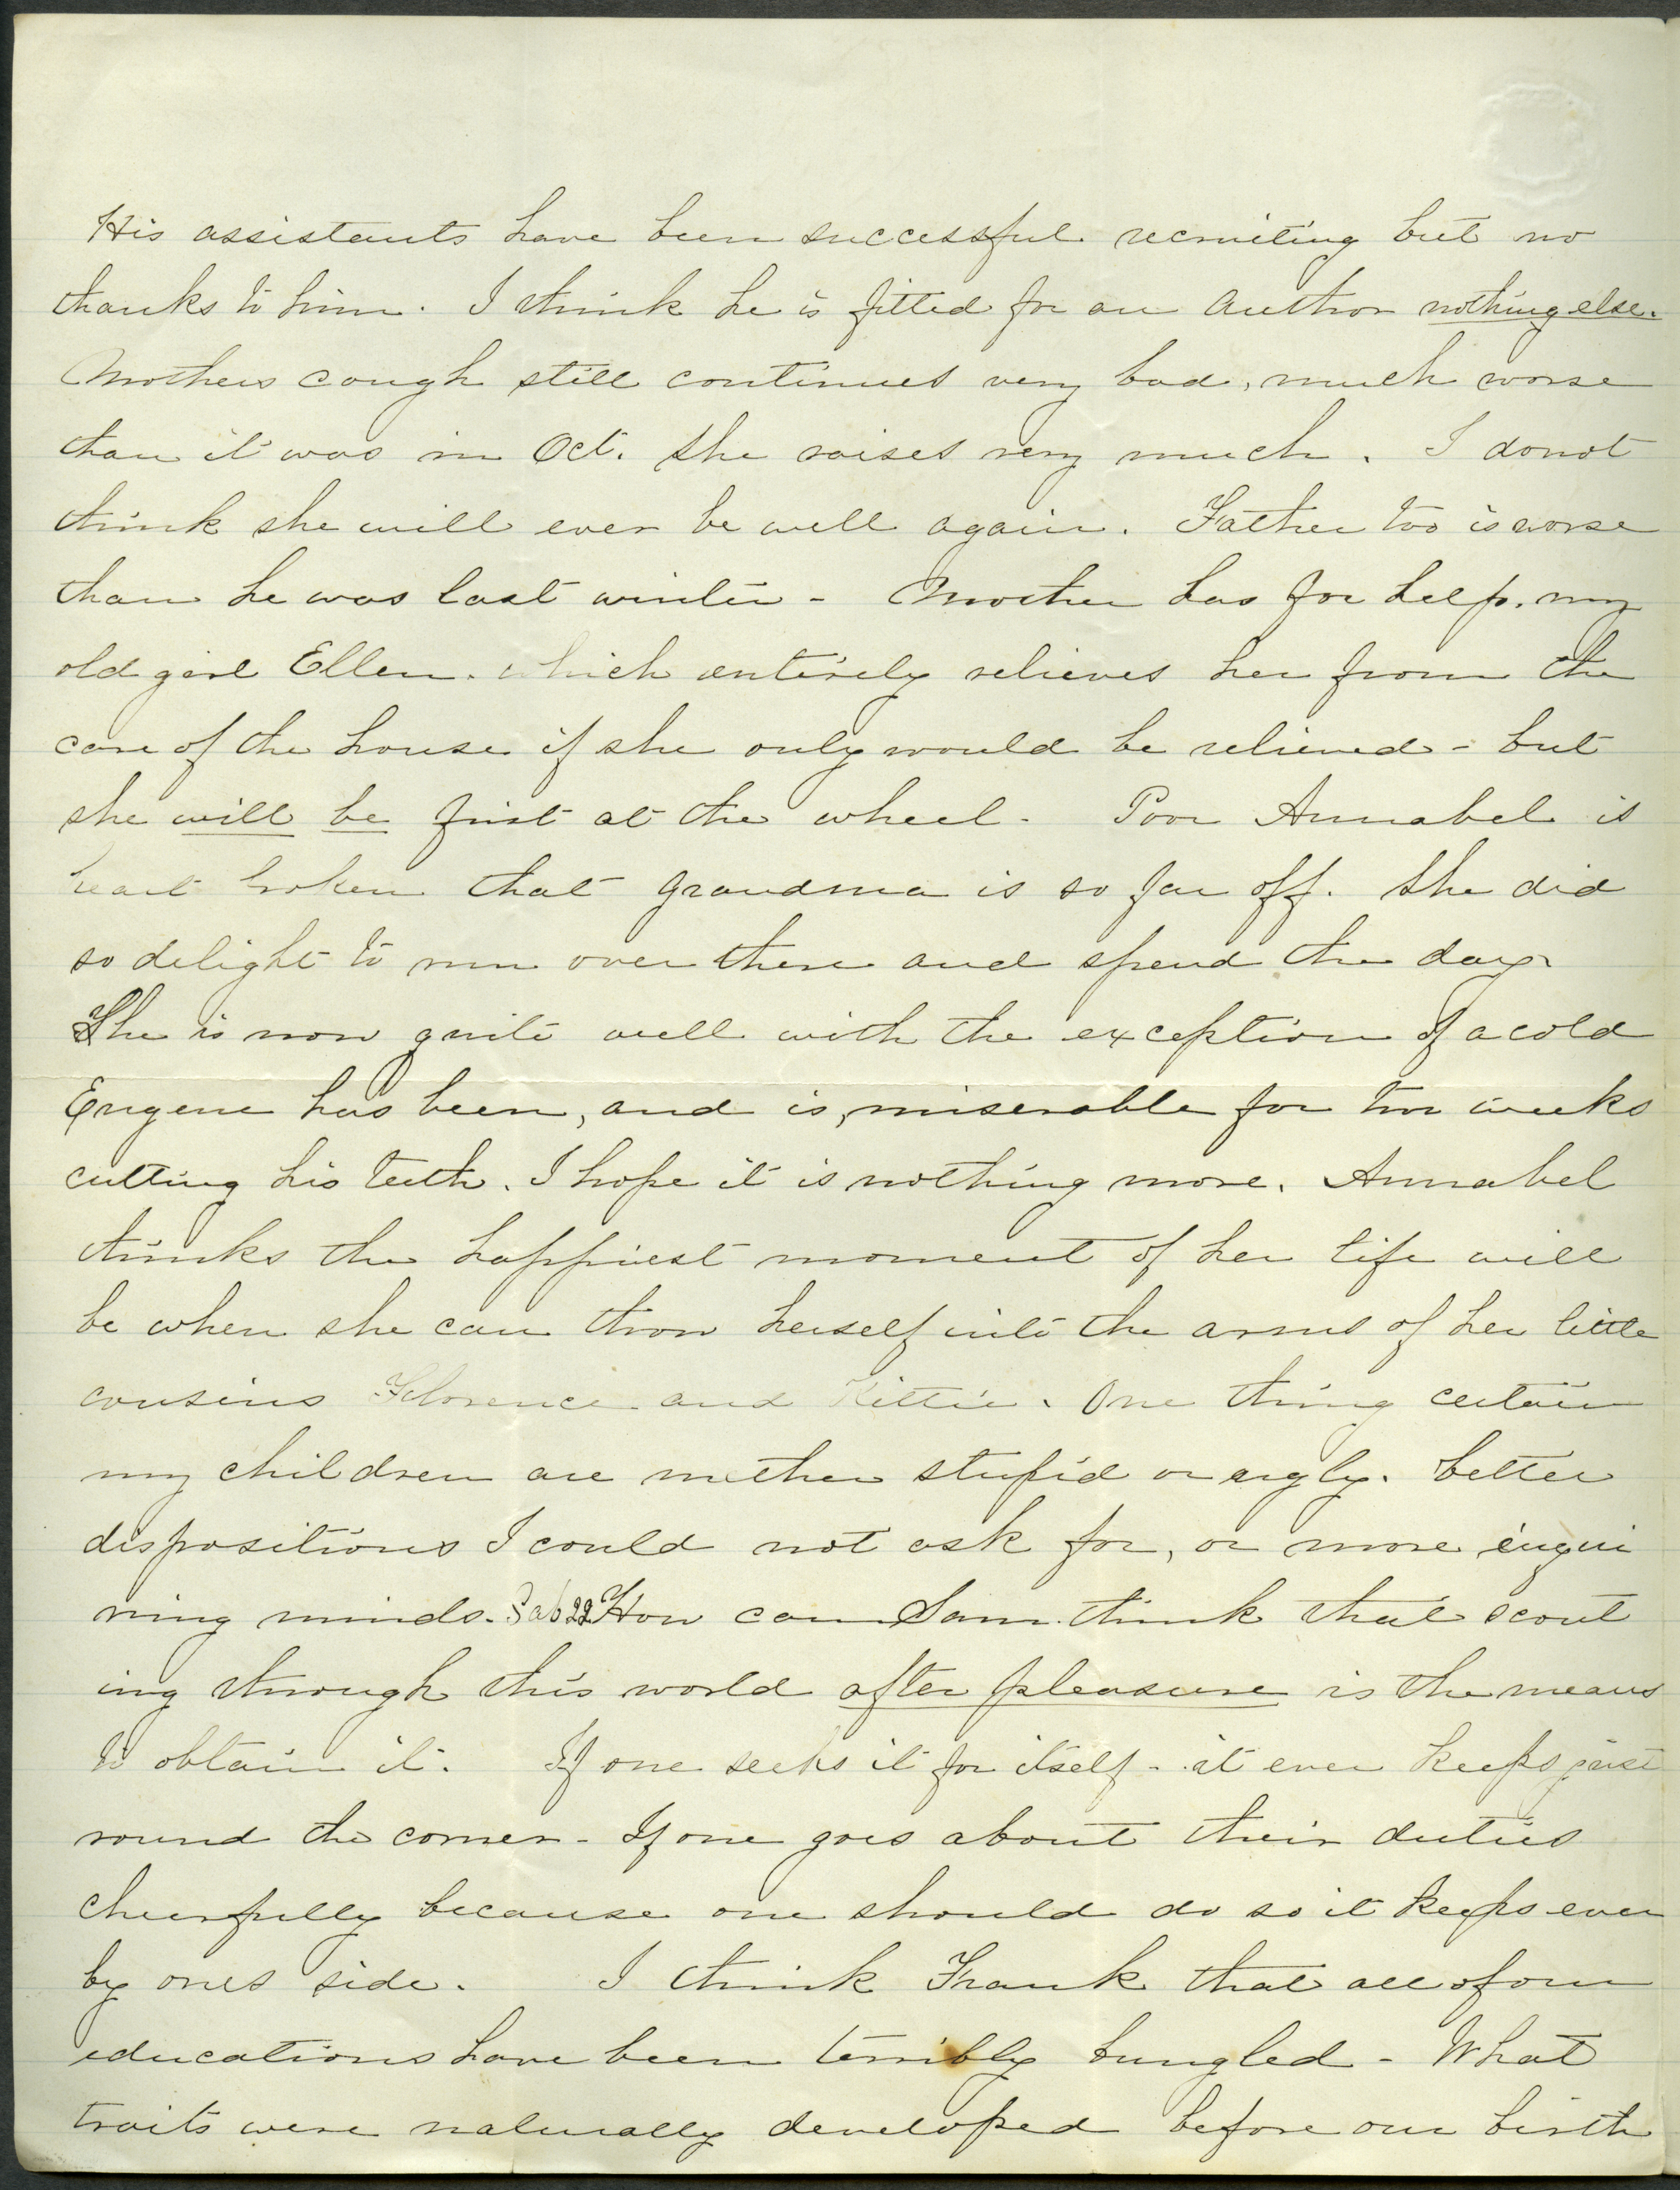 His assistants have been successful recruiting but no
thanks to him. I think he is fitted for an Author nothing else.
Mothers cough still continues very bad, much worse
than it was in Oct. She raises very much. I donot
think she will ever be well again. Father too is worse
than he was last winter - Mother has for help. my
old girl Ellen. which entirely relieves her from the
care of the house if she only would be relieved - but
she will be first at the wheel - Poor Annabel is
heart broken that Grandma is so far off. She did
so delight to run over there and spend the day.
She is now quite well with the exception of a cold
Eugene has been, and is, miserable for two weeks
cutting his teeth. I hope it is nothing more. Annabel
thinks the happiest moment of her life will
be when she can throw herself into the arms of her little
cousins Florence and Kittie. One thing certain
my children are neither stupid or ugly. better
dispositions I could not ask for, or more inqui
ring minds. Sab 22 How can Sam think that scout
ing through this world after pleasure is the means
to obtain it. If one seeks it for itself - it ever keeps just
round the corner - If one goes about their duties
cheerfully because one should do so it keeps ever
by ones side. I think Frank that all of our
educations have been terribly bungled - What
traits were naturally developed before our birth